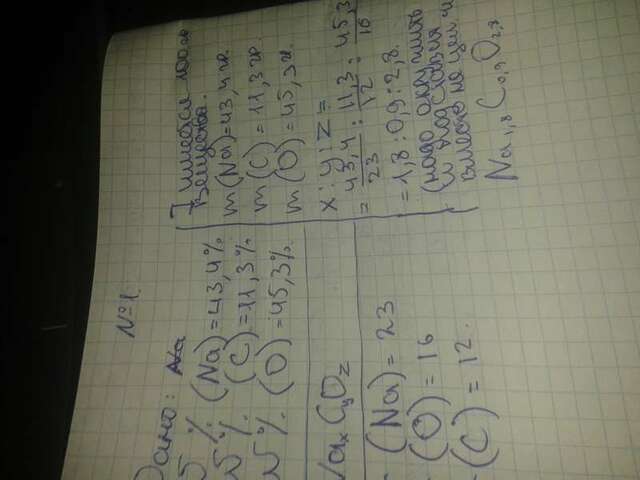 №1.
Дано: Na
ω% (Na)=43,4%
ω% (C)=11,3%
ω% (O)=45,3%
NaxCyOz
(Na)=23
(O)=16
(C)=12.
имеется 100 гр
вещества.
m(Na)=43,4 гр.
m(C)=11,3 гр.
m(O)=45,3 гр.
x:y:z=
=43,4/23:11,3/12:45,3/16
=1,8:0,9:2,8.
(надо округлить
и подставив
вместо не цел
Na1,8C0,9O2,8